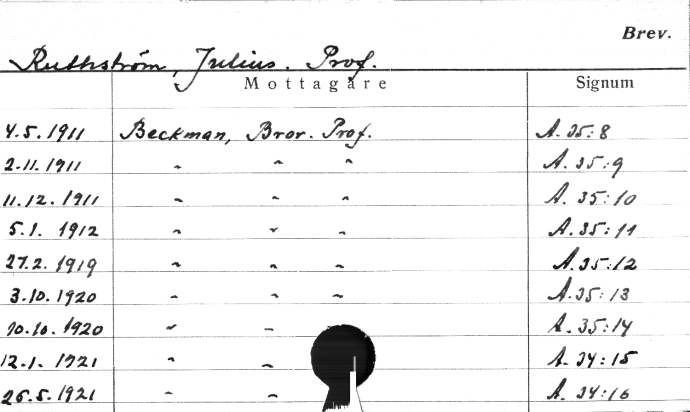 Brev.
Ruthström, Julius. Prof.
Mottagare Signum
4.5.1911 Beckman, Bror. Prof. A. 35:8
2.11.1911 " " " A. 35:9
11.12.1911 " " " A. 35:10
5.1. 1912 " " " A. 35:11
27.2. 1919 " " " A. 35:12
3.10.1920 " " " A. 35:13
10.10.1920 " " A. 35:14
12.1. 1921 " " A. 34:15
26.5.1921 " " A. 34:16